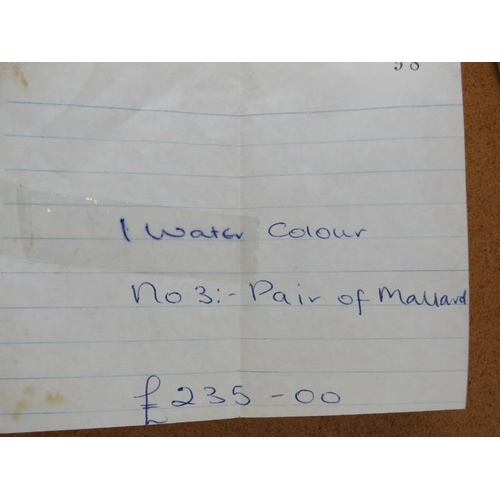 1 Water Colour
No 3:- Pair of Mallard
£235-00